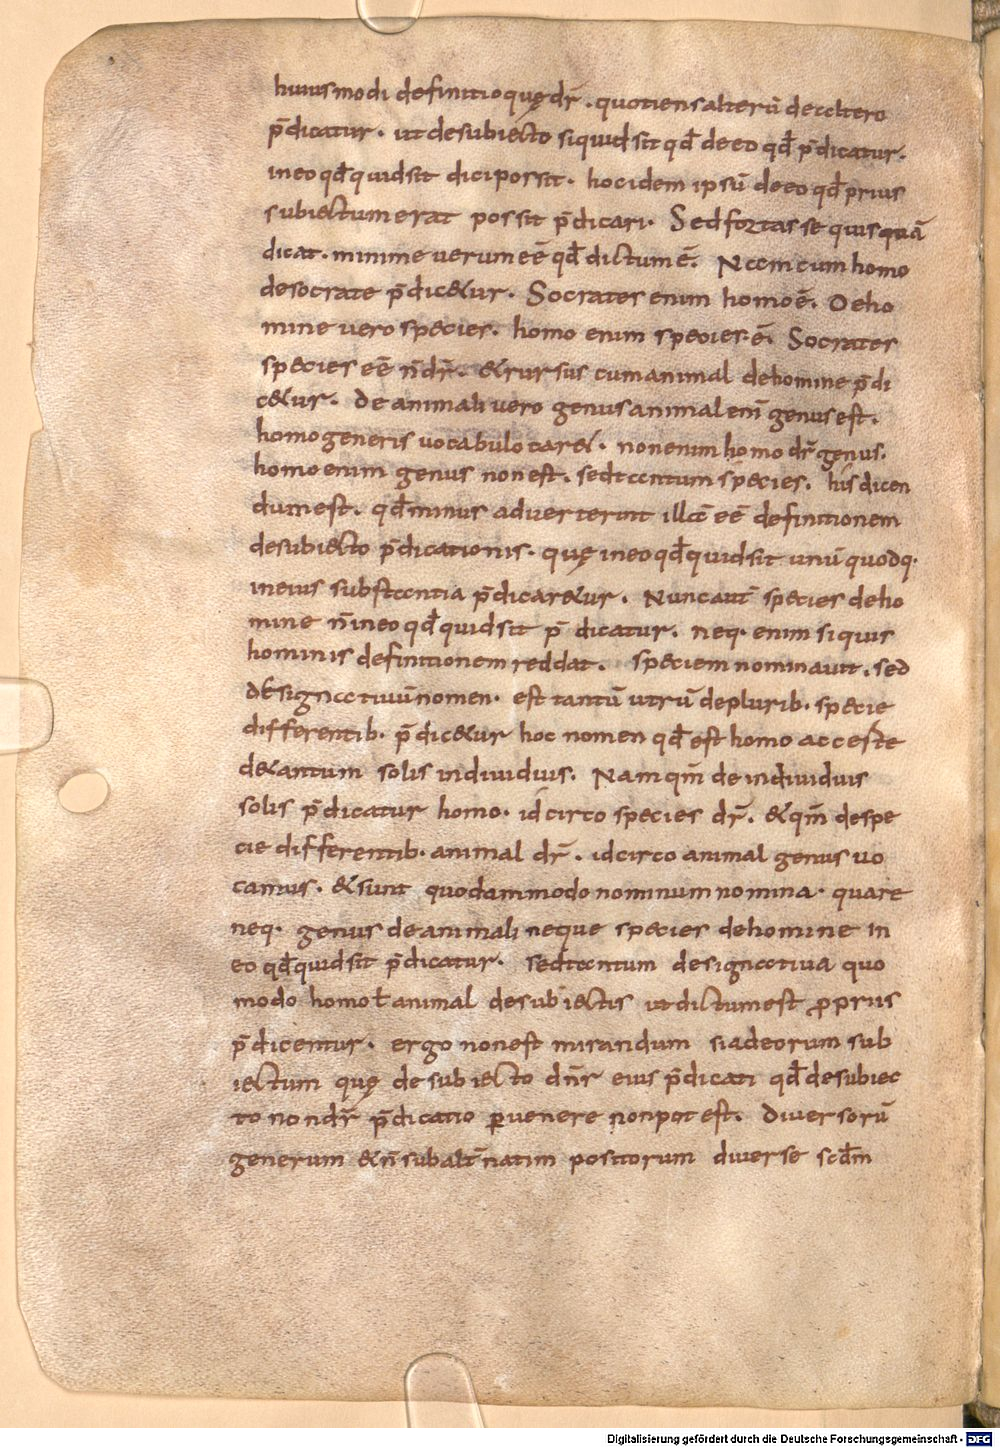 huius modi definitio quę dr̄. quotiens alterū de altero
p̄dicatur. ut de subiecto siquid sit qđ de eo qđ p̄dicatur.
in eo qđ quid sit dici possit. hoc idem ipsū de eo qđ prius
subiectum erat possit p̄dicari. Sed fortasse quisquā
dicat. minime uerum eē qđ dictum ē. Nam cum homo
de socrate p̄dic&ur. Socrates enim homo ē. De ho
mine uero species. homo enim species ē. Socrates
species eē n̄ dr̄. & rursus cum animal de homine p̄di
c&ur. De animali uero genus animal enī genus est.
homo generis uocabulo car&. non enim homo dr̄ genus.
homo enim genus non est. sed tantum species. his dicen
dum est. qđ minus aduerterint illā eē definitionem
de subiecto p̄dicationis. quę in eo qđ quid sit unū quodq·
in eius substantia p̄dicar&ur. Nunc aut̄ species de ho
mine n̄ in eo qđ quid sit p̄dicatur. neq· enim si quis
hominis definitionem reddat. speciem nominauit. sed
designatiuū nomen. est tantū utrū de plurib· specie
differentib· p̄dic&ur hoc nomen qđ est homo ac ceste
d& antum solis indiuiduis. Nam qm̄ de indiuiduis
solis p̄dicatur homo. idcirco species dr̄. & qm̄ de spe
cie differentib· animal dr̄. idcirco animal genus uo
camus. & sunt quodammodo nominum nomina. quare
neq· genus de animali neque species de homine in
eo qđ quid sit p̄dicatur. sed tantum designatiua quo
modo homo ł animal de subiectis ut dictum est proprius
p̄dicentur. ergo non est mirandum si ad eorum sub
iectum quę de subiecto dn̄r eius p̄dicati qđ de subiec
to non dr̄ p̄dicatio ꝑuenere non potest. Diuersorū
generum & n̄ subalt̄natim positorum diuerse scđm
Digitalisierung gefördert durch die Deutsche Forschungsgemeinschaft - DFG